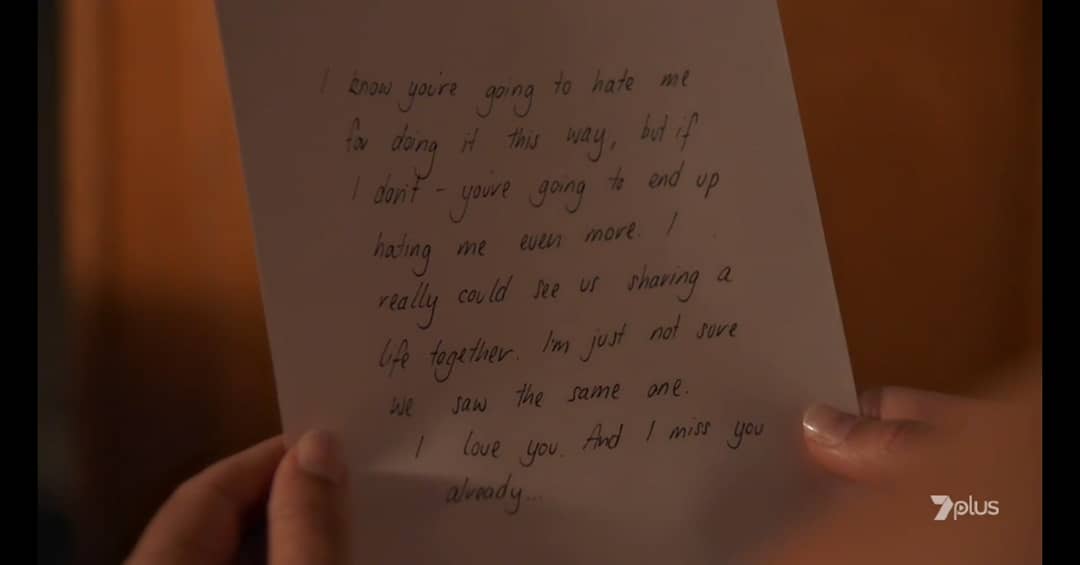 I know you're going to hate me
for doing it this way, but if
I don't - you're going to end up
hating me even more. I
really could see us sharing a
life together. I'm just not sure
we saw the same one.
I love you. And I miss you
already...
7plus